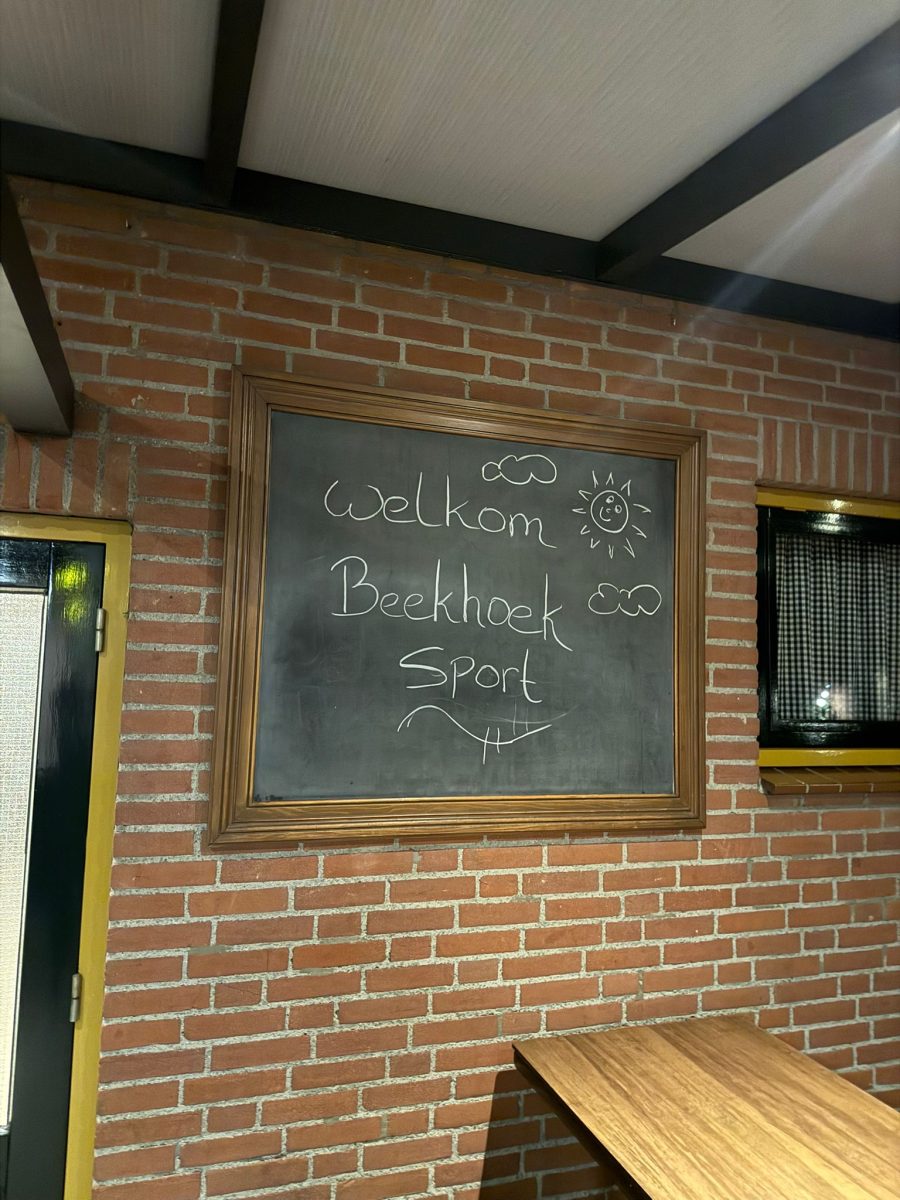 Welkom
Beekhoek
Sport